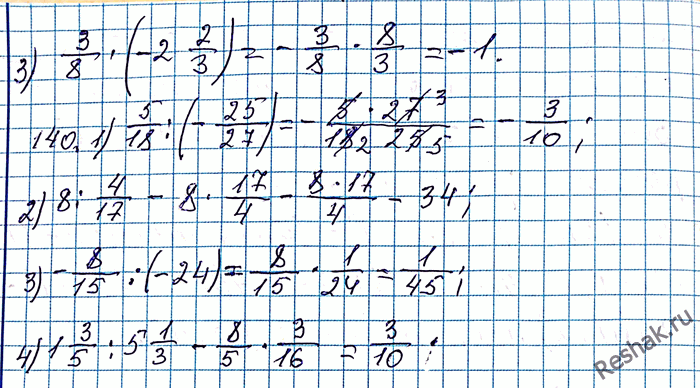 3) 3/8 · (-2 2/3) = - 3/8 · 8/3 = -1.
140. 1) 5/18 : (- 25/27) = - 5 · 27 3 / 18 2 25 5 = - 3/10 ;
2) 8 : 4/17 - 8 · 17/4 - 8 · 17/4 - 34 ;
3) - 8/15 : (-24) = 8/15 · 1/24 = 1/45 ;
4) 1 3/5 : 5 1/3 - 8/5 · 3/16 = 3/10 ;
Reshak.ru